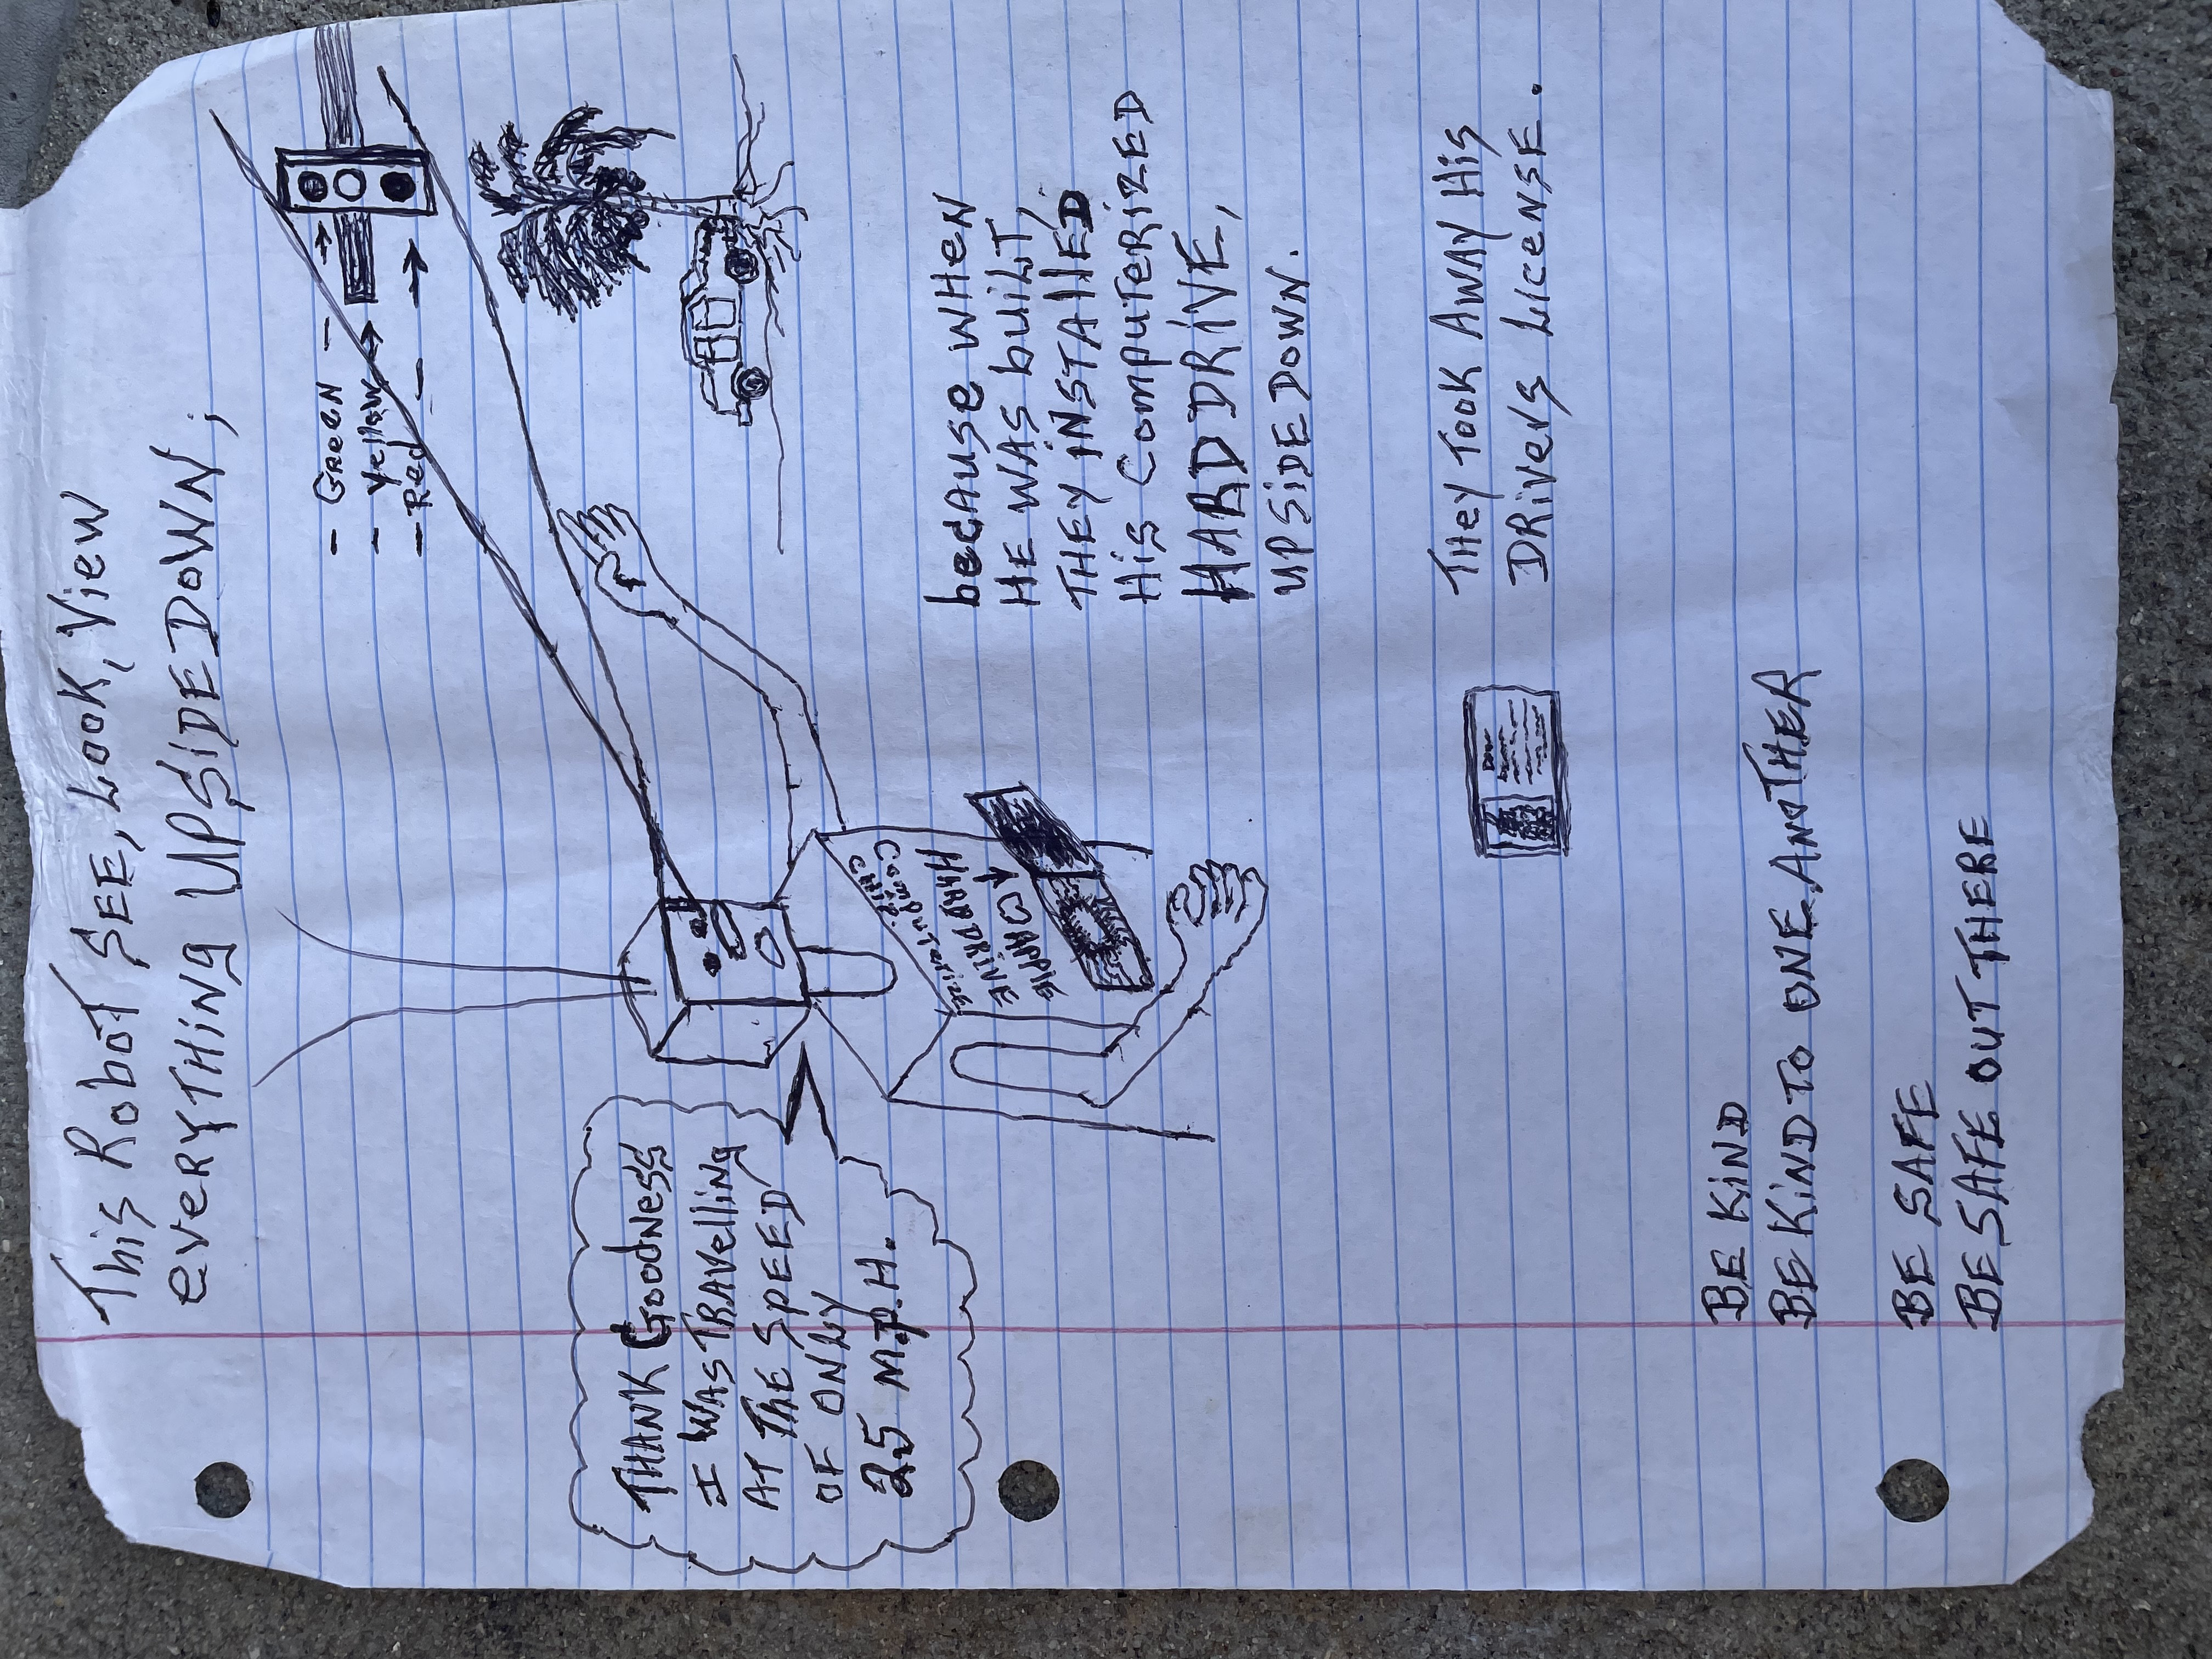 This Robot SEE, Look, View
everyTHiNg UPSiDEDOWN,
- GReeN -
- Yellow
- Red -
THANK GOODNESS
I WAS TRAVElliNg
AT THE SPEED
OF ONLY
25 M.P.H.
CHip
Computerize
HARDDRiVE
becAUSE WHEN
HE WAS buiLT,
THEY iNSTAllED
His COMPUTERiZED
HARDDRiVE,
UPSiDEDOWN.
THey TOOK AWAY His
DRivers LiCENSE.
BE KiND
BE KiND TO ONE ANOTHER
BE SAFE
BE SAFE OUT THERE